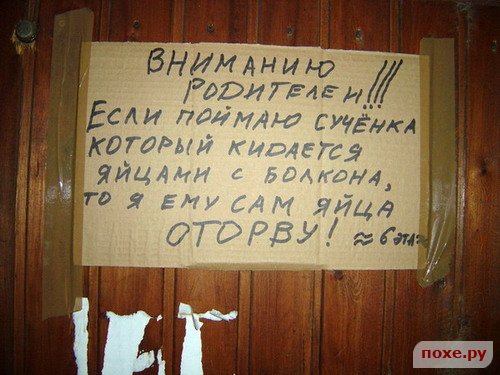 ВНИМАНИЮ
РОДИТЕЛЕЙ!!!
ЕСЛИ ПОЙМАЮ СУЧЁНКА
КОТОРЫЙ КИДАЕТСЯ
ЯЙЦАМИ С БОЛКОНА,
ТО Я ЕМУ САМ ЯЙЦА
ОТОРВУ! ≈ 6 ЭТАЖ
похе.ру